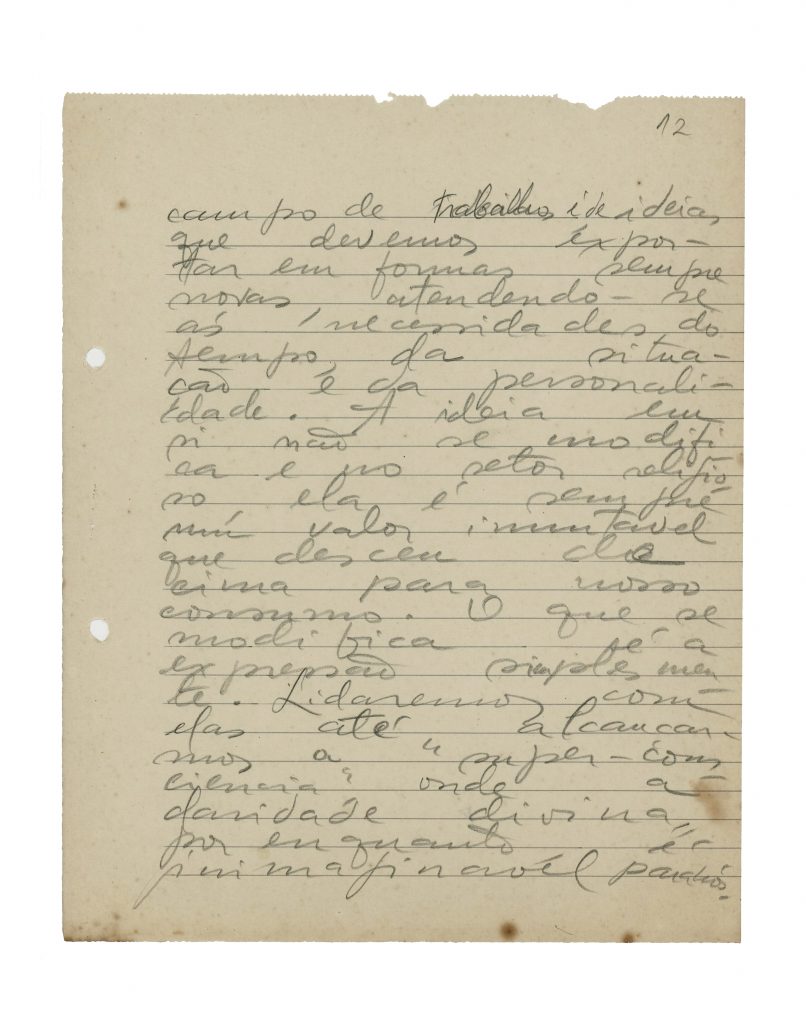 12
campo de trabalhos i de ideias
que devemos expor-
tar em formas sempre
novas, atendendo-se
ás necessidades do
tempo, da situa-
cão é da personali-
dade. A ideia em
si não se modifi
ca e no setor religio
so, ela é sempre
um valor imutavel
que desceu de
cima para nosso
consumo. O que se
modifica é a
expressão simplesmen
te. Lidaremos com
elas até alcancar-
mos a "super-cons
ciencia" onde a
claridade divina,
por enquanto é
inimaginavél para nós.